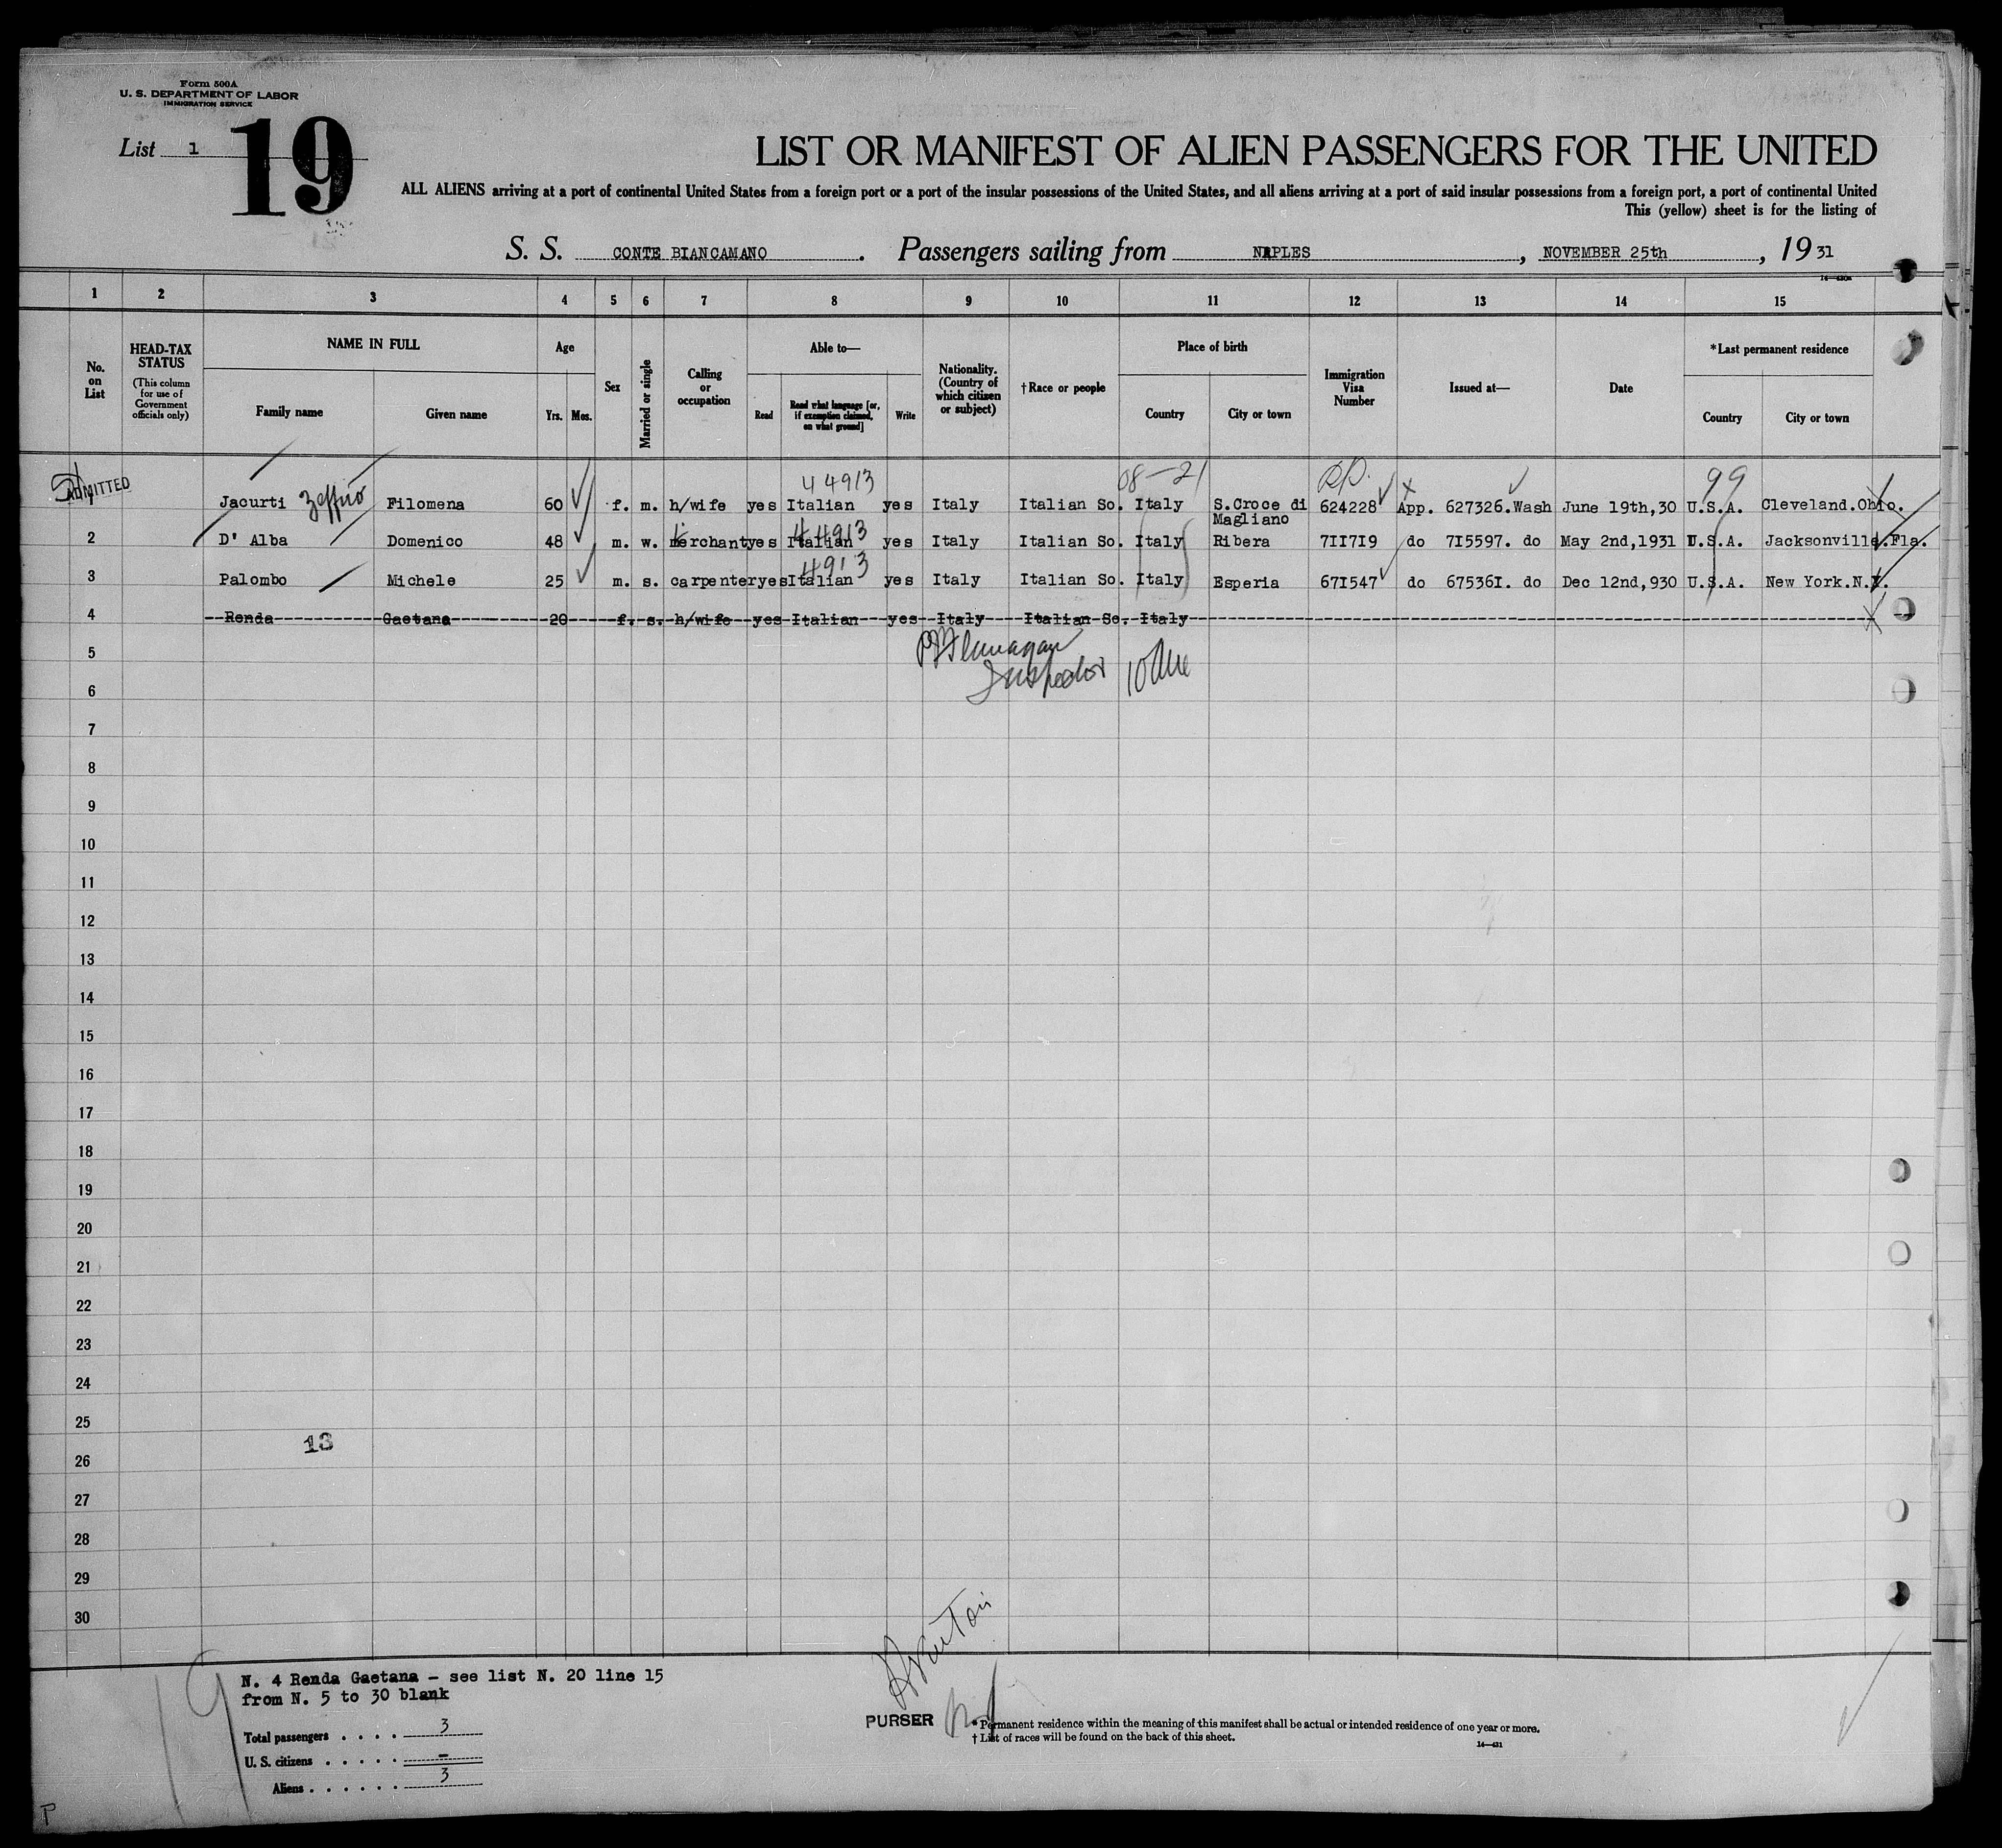 Form 500A
U. S. DEPARTMENT OF LABOR
IMMIGRATION SERVICE
List 1
19
LIST OR MANIFEST OF ALIEN PASSENGERS FOR THE UNITED
ALL ALIENS arriving at a port of continental United States from a foreign port or a port of the insular possessions of the United States, and all aliens arriving at a port of said insular possessions from a foreign port, a port of continental United
This (yellow) sheet is for the listing of
S. S. CONTE BIANCAMANO. Passengers sailing from NAPLES, NOVEMBER 25th, 1931
1 2 3 4 5 6 7 8 9 10 11 12 13 14 15
No. on List
HEAD-TAX STATUS
(This column for use of Government officials only)
NAME IN FULL
Family name Given name
Age
Yrs. Mos.
Sex
Married or single
Calling or occupation
Able to—
Read
Read what language [or, if exemption claimed, on what ground]
Write
Nationality. (Country of which citizen or subject)
†Race or people
Place of birth
Country City or town
Immigration Visa Number
Issued at—
Date
*Last permanent residence
Country City or town
ADMITTED
44913 08-21 99
1 Jacurti Zeffiro Filomena 60 f. m. h/wife yes Italian yes Italy Italian So. Italy S.Croce di Magliano 624228 App. 627326.Wash June 19th,30 U.S.A. Cleveland.Ohio.
44913
2 D' Alba Domenico 48 m. w. merchant yes Italian yes Italy Italian So. Italy Ribera 7II7I9 do 7I5597. do May 2nd,1931 U.S.A. Jacksonville.Fla.
4913
3 Palombo Michele 25 m. s. carpenter yes Italian yes Italy Italian So. Italy Esperia 67I547 do 67536I. do Dec 12nd,930 U.S.A. New York.N.Y.
4 Renda Gaetana 20 f. s. h/wife yes Italian yes Italy Italian So. Italy
Flanagan
Inspector
5
6
7
8
9
10
11
12
13
14
15
16
17
18
19
20
21
22
23
24
25
13
26
27
28
29
30
N. 4 Renda Gaetana - see list N. 20 line 15
from N. 5 to 30 blank
Total passengers . . . . 3
U. S. citizens . . . . . -
Aliens . . . . . . 3
PURSER
* Permanent residence within the meaning of this manifest shall be actual or intended residence of one year or more.
† List of races will be found on the back of this sheet.
14—431
P